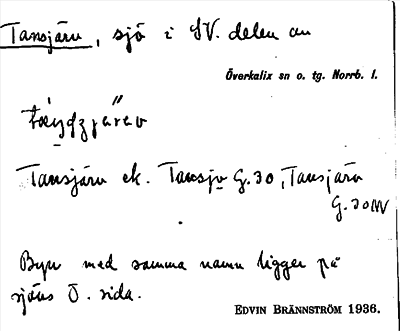 Tansjärv, sjö i SV. delen av
Överkalix sn o. tg. Norrb. l.
Tansjärv ek. Tansjv G.30, Tansjärv
G.30NV
Byn med samma namn ligger på
sjöns Ö. sida.
EDVIN BRÄNNSTRÖM 1936.